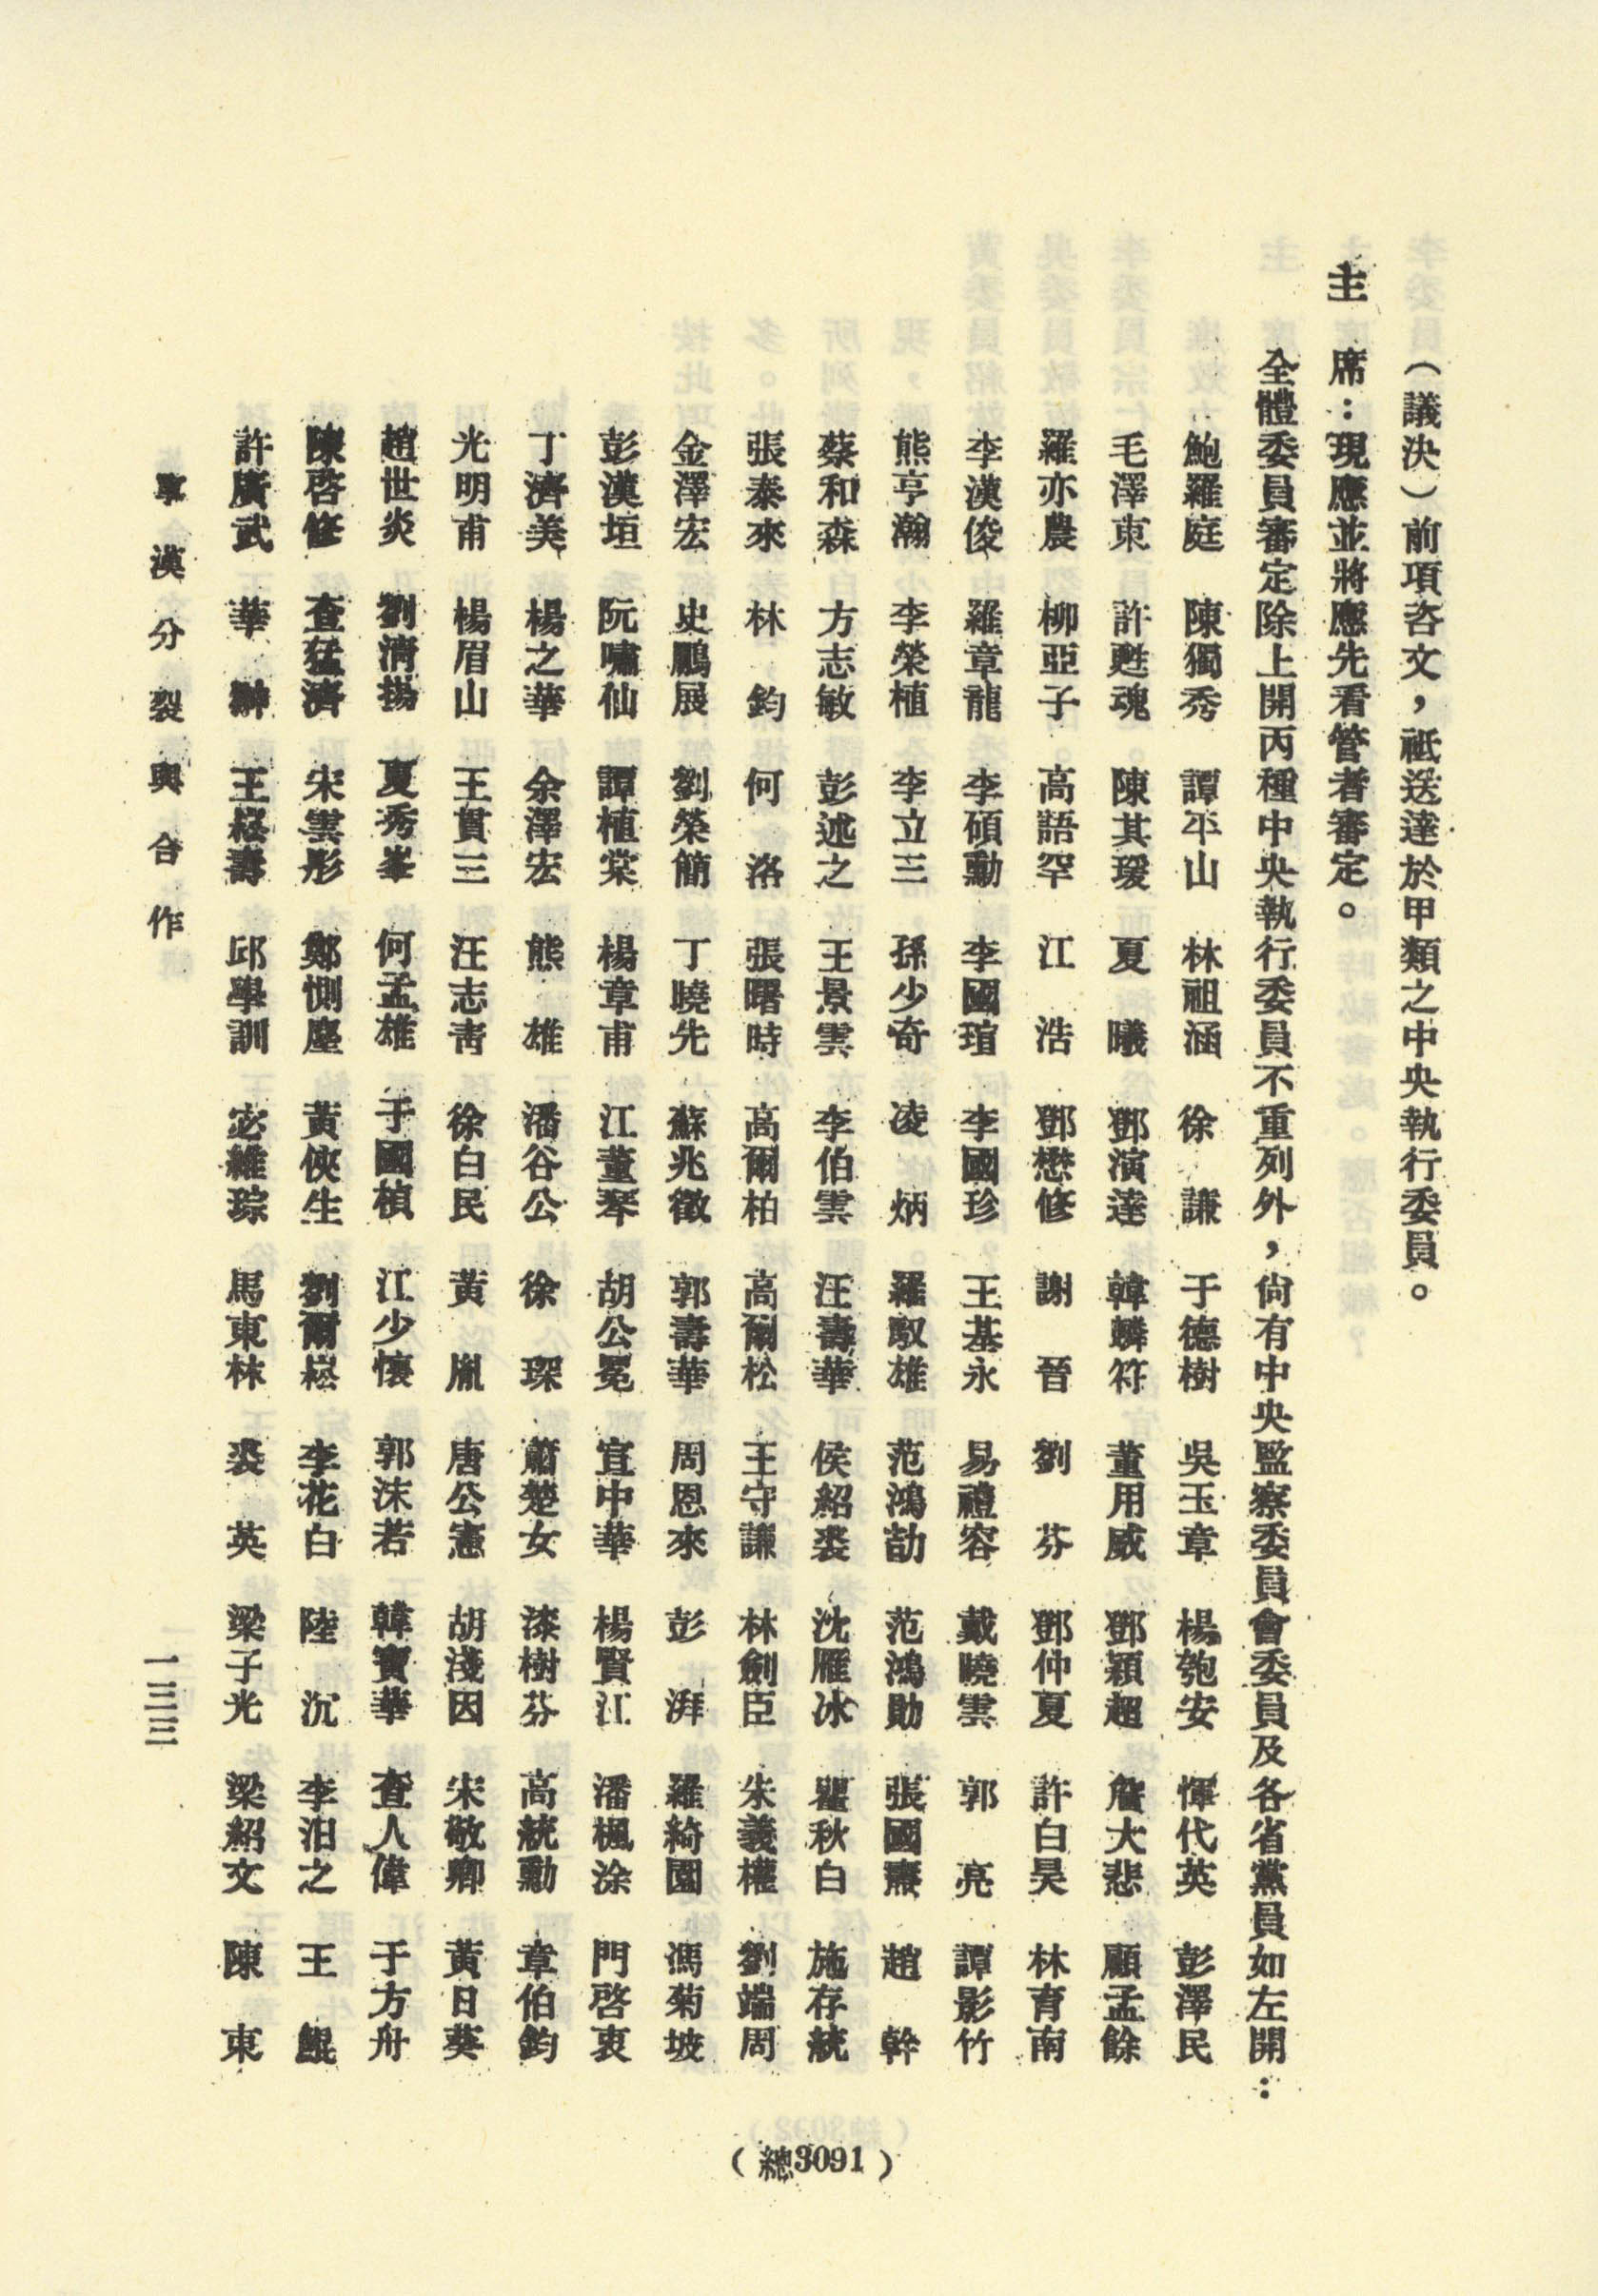 （議決）前項咨文，祇送達於甲類之中央執行委員。
主　席：現應並將應先看管者審定。
全體委員審定除上開丙種中央執行委員不重列外，尙有中央監察委員會委員及各省黨員如左開：
鮑羅庭　陳獨秀　譚平山　林祖涵　徐　謙　于德樹　吳玉章　楊匏安　惲代英　彭澤民
毛澤東　許甦魂　陳其瑗　夏　曦　鄧演達　韓麟符　董用威　鄧穎超　詹大悲　顧孟餘
羅亦農　柳亞子　高語罕　江　浩　鄧懋修　謝　晉　劉　芬　鄧仲夏　許白昊　林育南
李漢俊　羅章龍　李碩勳　李國瑄　李國珍　王基永　易禮容　戴曉雲　郭　亮　譚影竹
熊亨瀚　李榮植　李立三　孫少奇　凌　炳　羅馭雄　范鴻劼　范鴻勛　張國燾　趙　幹
蔡和森　方志敏　彭述之　王景雲　李伯雲　汪壽華　侯紹裘　沈雁冰　瞿秋白　施存統
張泰來　林　鈞　何　洛　張曙時　高爾柏　高爾松　王守謙　林劍臣　朱義權　劉端周
金澤宏　史鵬展　劉榮簡　丁曉先　蘇兆徵　郭壽華　周恩來　彭　湃　羅綺園　馮菊坡
彭漢垣　阮嘯仙　譚植棠　楊章甫　江董琴　胡公冕　宣中華　楊賢江　潘楓涂　門啓衷
丁濟美　楊之華　余澤宏　熊　雄　潘谷公　徐　琛　蕭楚女　漆樹芬　高統勳　章伯鈞
光明甫　楊眉山　王貫三　汪志靑　徐白民　黃　胤　唐公憲　胡淺因　宋敬卿　黃日葵
趙世炎　劉淸揚　夏秀峯　何孟雄　于國楨　江少懷　郭沫若　韓寶華　查人偉　于方舟
陳啓修　查猛濟　宋雲彤　鄭惻塵　黃俠生　劉爾崧　李花白　陸　沉　李汨之　王　鯤
許廣武　華　　王崧壽　邱學訓　宓維琮　馬東林　裘　英　梁子光　梁紹文　陳　東
寧漢分裂與合作
一三三
（總3091）